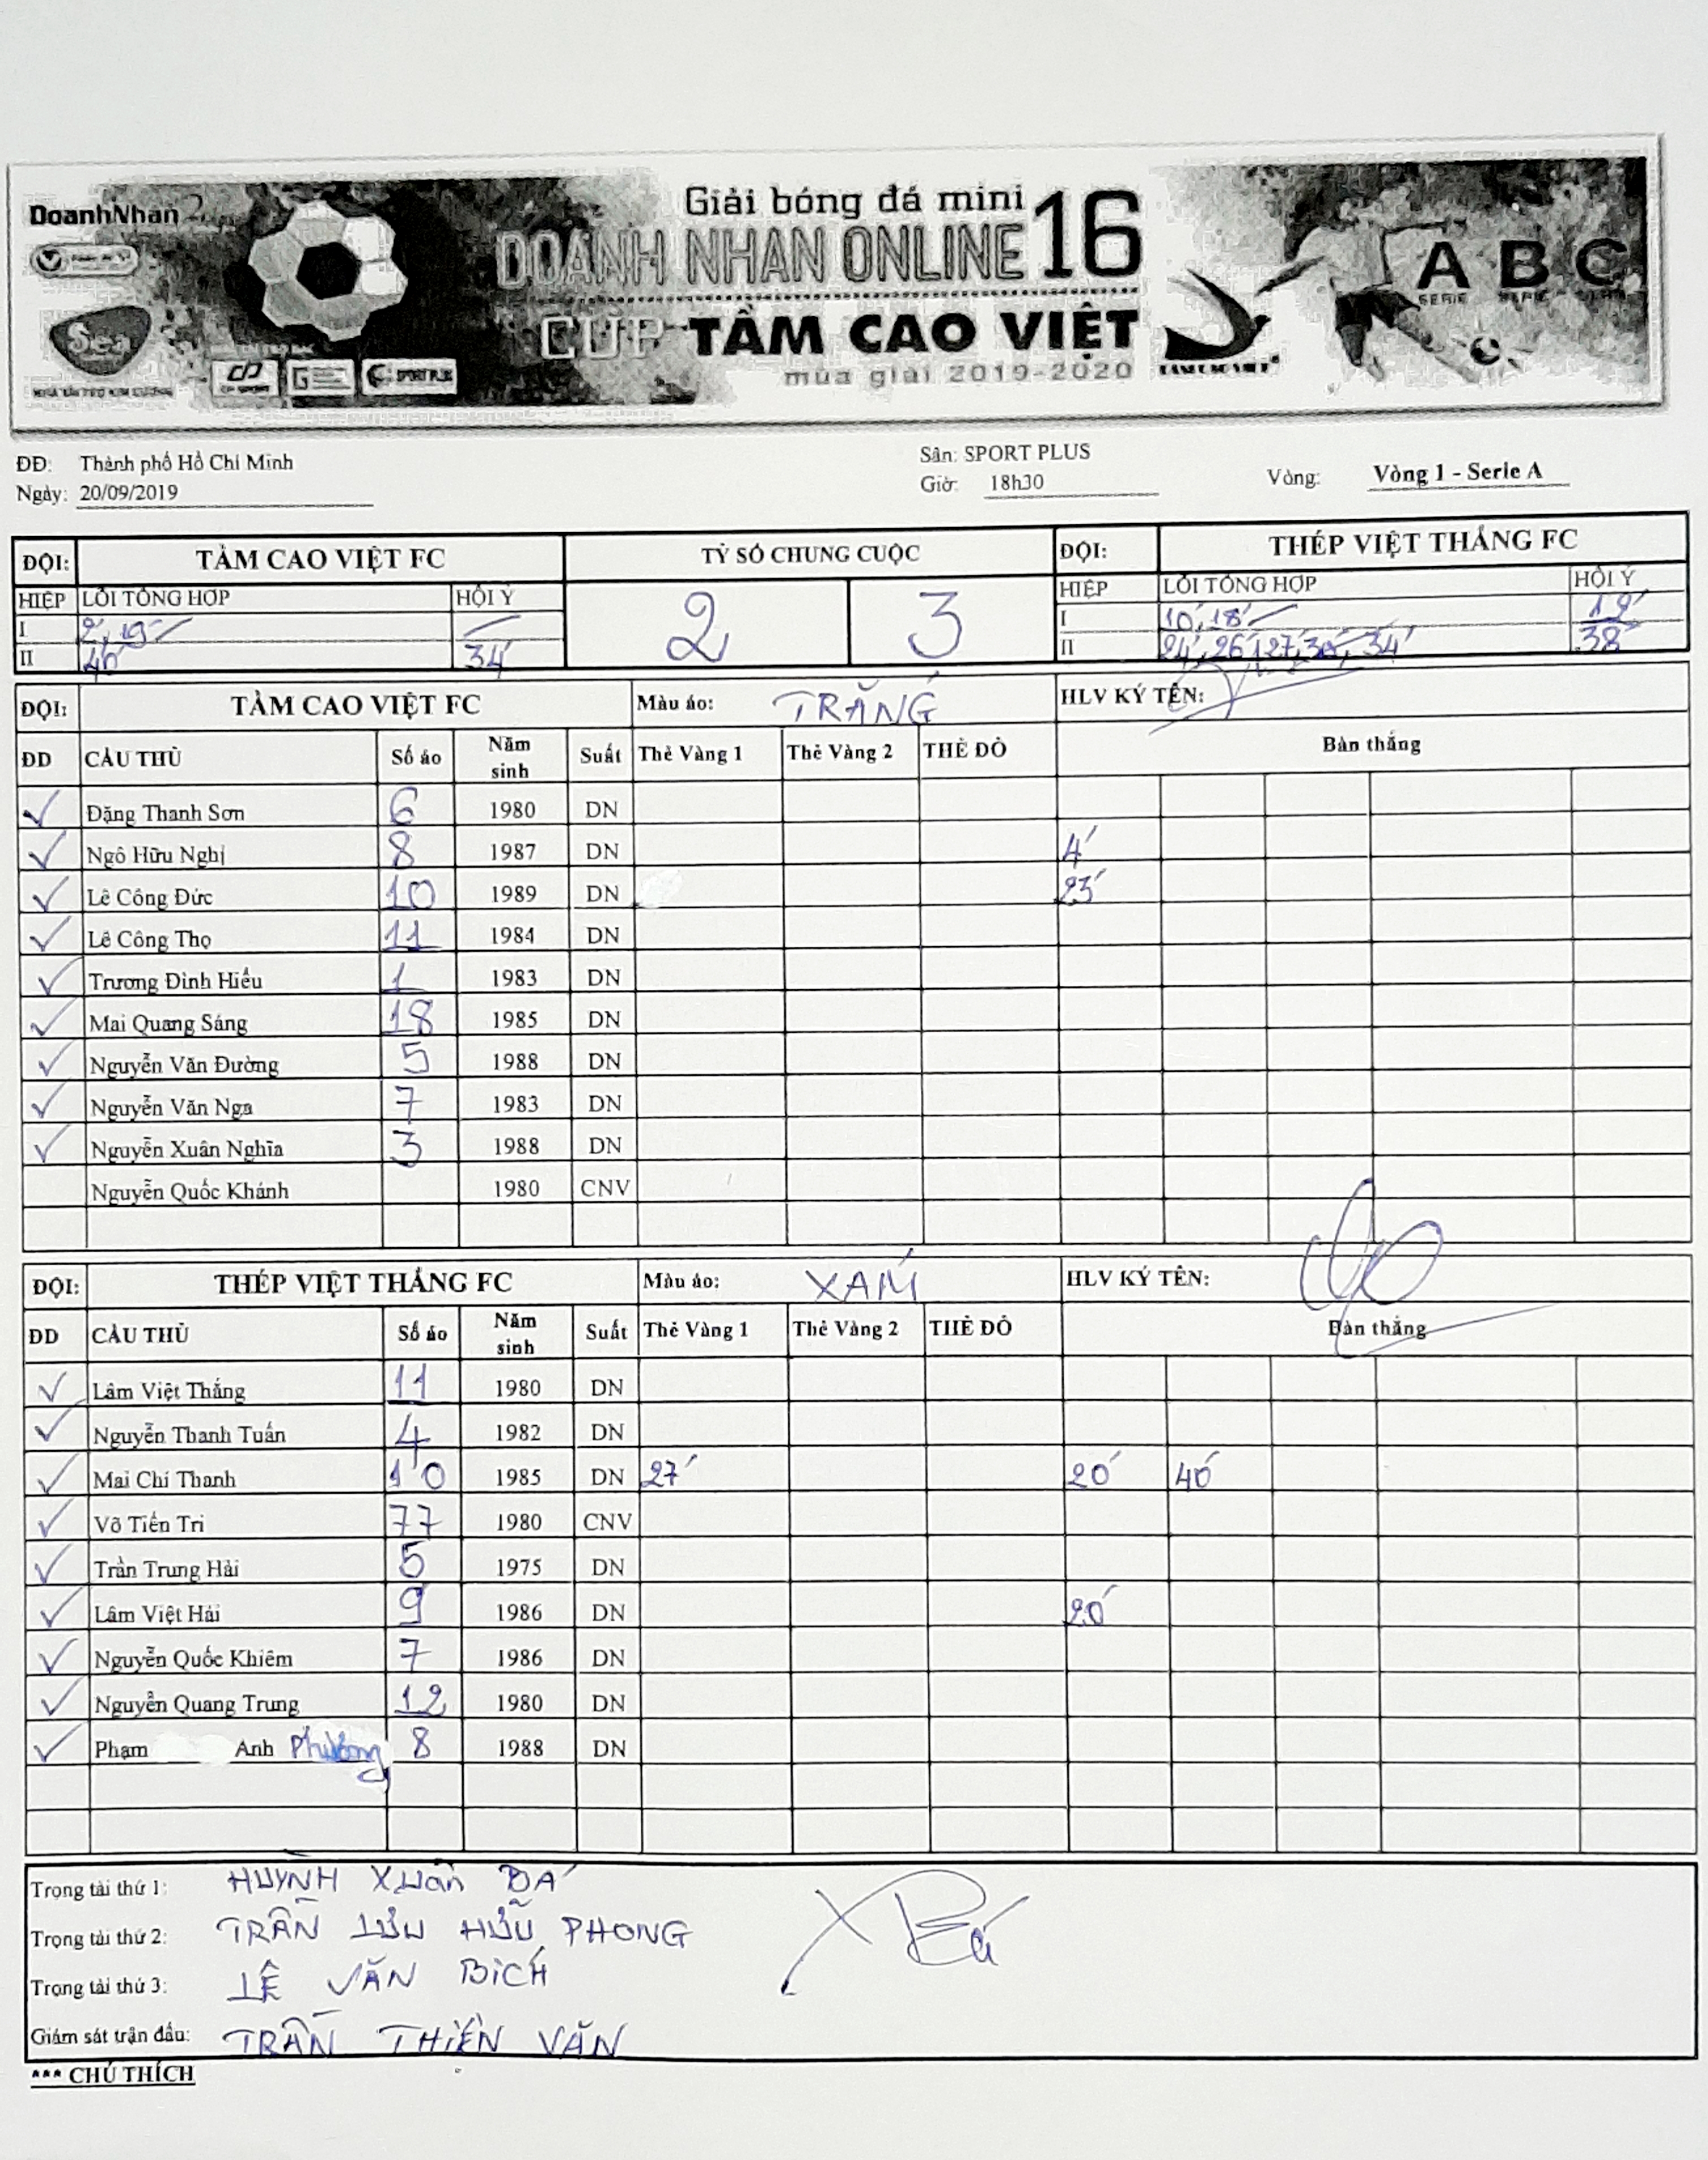 DoanhNhan
Giải bóng đá mini
DOANH NHAN ONLINE 16
CÚP TẦM CAO VIỆT
mùa giải 2019-2020
Sea
SPORT PLUS
A B C
SERIE SERIE SERIE
ĐĐ: Thành phố Hồ Chí Minh Sân: SPORT PLUS
Ngày: 20/09/2019 Giờ: 18h30 Vòng: Vòng 1 - Serie A
ĐỘI: TẦM CAO VIỆT FC TỶ SỐ CHUNG CUỘC ĐỘI: THÉP VIỆT THẮNG FC
HIỆP LỖI TỔNG HỢP HỘI Ý 2 3 HIỆP LỖI TỔNG HỢP HỘI Ý
I 2', 19' I 10', 18' 19'
II 34' II 24', 26', 27', 34' 38'
ĐỘI: TẦM CAO VIỆT FC Màu áo: TRẮNG HLV KÝ TÊN:
ĐD CẦU THỦ Số áo Năm sinh Suất Thẻ Vàng 1 Thẻ Vàng 2 THẺ ĐỎ Bàn thắng
✓ Đặng Thanh Sơn 6 1980 DN
✓ Ngô Hữu Nghị 8 1987 DN 4'
✓ Lê Công Đức 10 1989 DN 23'
✓ Lê Công Thọ 11 1984 DN
✓ Trương Đình Hiếu 1 1983 DN
✓ Mai Quang Sáng 18 1985 DN
✓ Nguyễn Văn Đường 5 1988 DN
✓ Nguyễn Văn Nga 7 1983 DN
✓ Nguyễn Xuân Nghĩa 3 1988 DN
Nguyễn Quốc Khánh 1980 CNV
ĐỘI: THÉP VIỆT THẮNG FC Màu áo: XÁM HLV KÝ TÊN:
ĐD CẦU THỦ Số áo Năm sinh Suất Thẻ Vàng 1 Thẻ Vàng 2 THẺ ĐỎ Bàn thắng
✓ Lâm Việt Thắng 11 1980 DN
✓ Nguyễn Thanh Tuấn 4 1982 DN
✓ Mai Chí Thanh 10 1985 DN 27' 20' 40'
✓ Võ Tiến Tri 77 1980 CNV
✓ Trần Trung Hải 5 1975 DN
✓ Lâm Việt Hải 9 1986 DN 20'
✓ Nguyễn Quốc Khiêm 7 1986 DN
✓ Nguyễn Quang Trung 12 1980 DN
✓ Phạm Anh Phương 8 1988 DN
Trọng tài thứ 1: HUỲNH XUÂN BÁ
Trọng tài thứ 2: TRẦN LƯU HỮU PHONG
Trọng tài thứ 3: LÊ VĂN BÍCH
Giám sát trận đấu: TRẦN THIỆN VĂN
*** CHÚ THÍCH